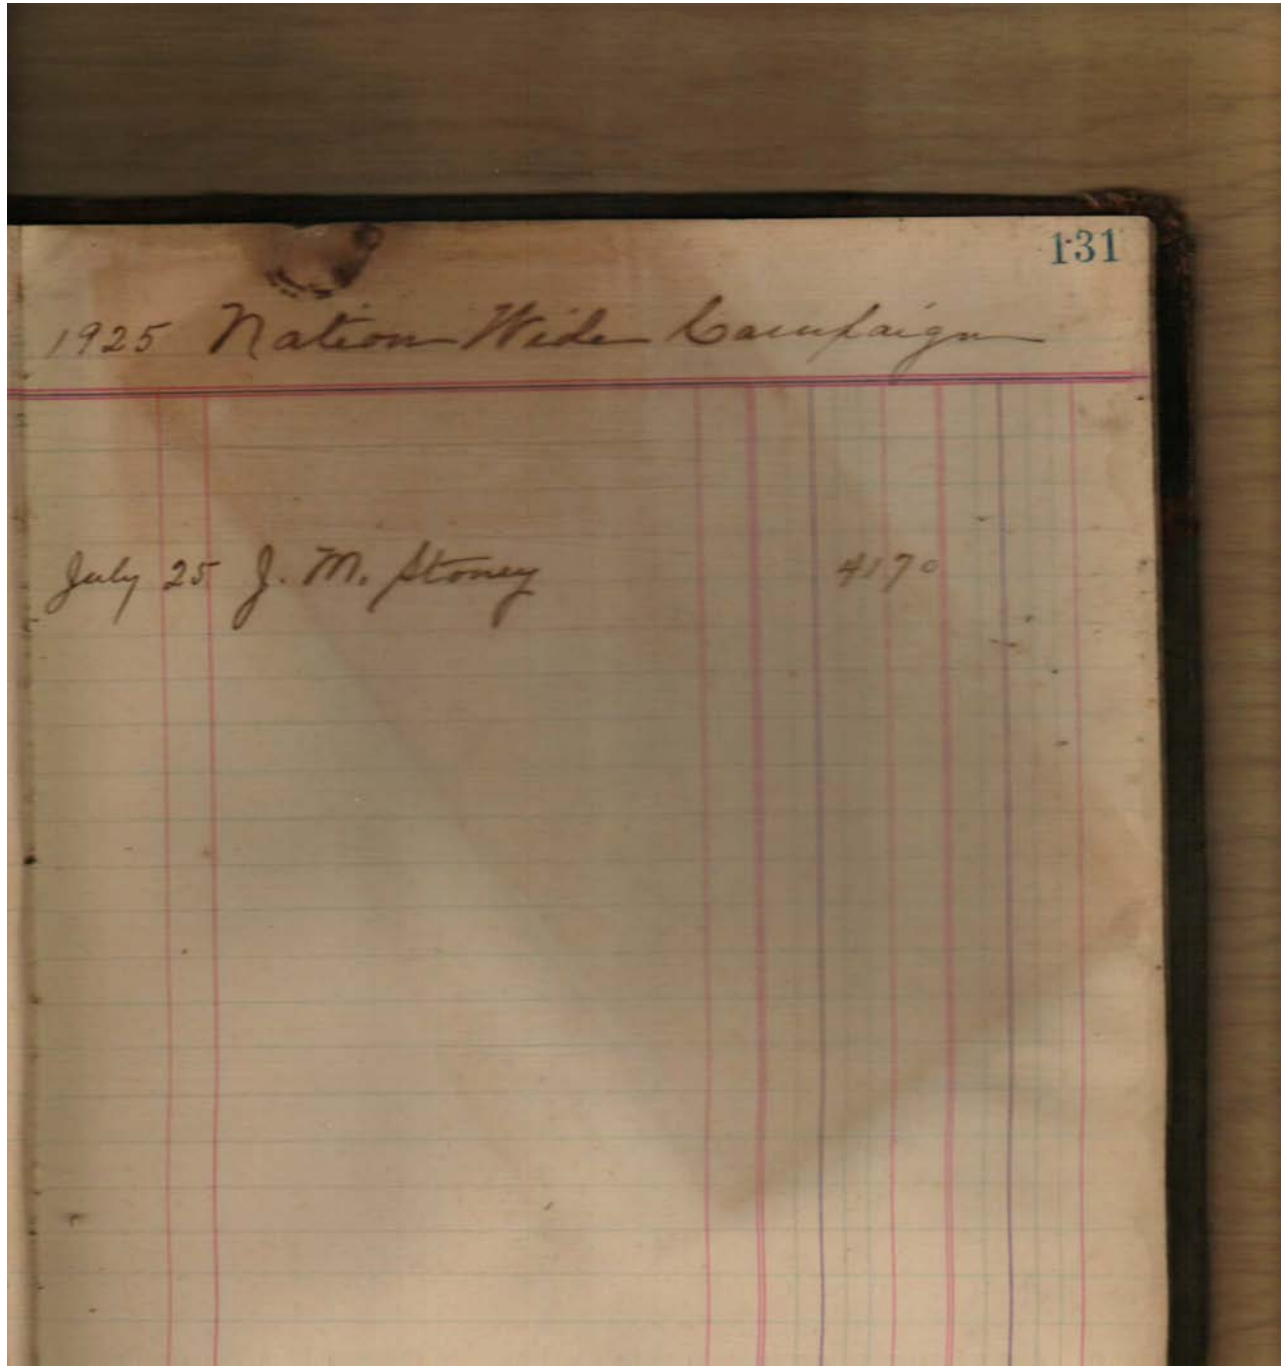 131
1925 Nation Wide Campaign
July 25 J. M. Stoney 41 70